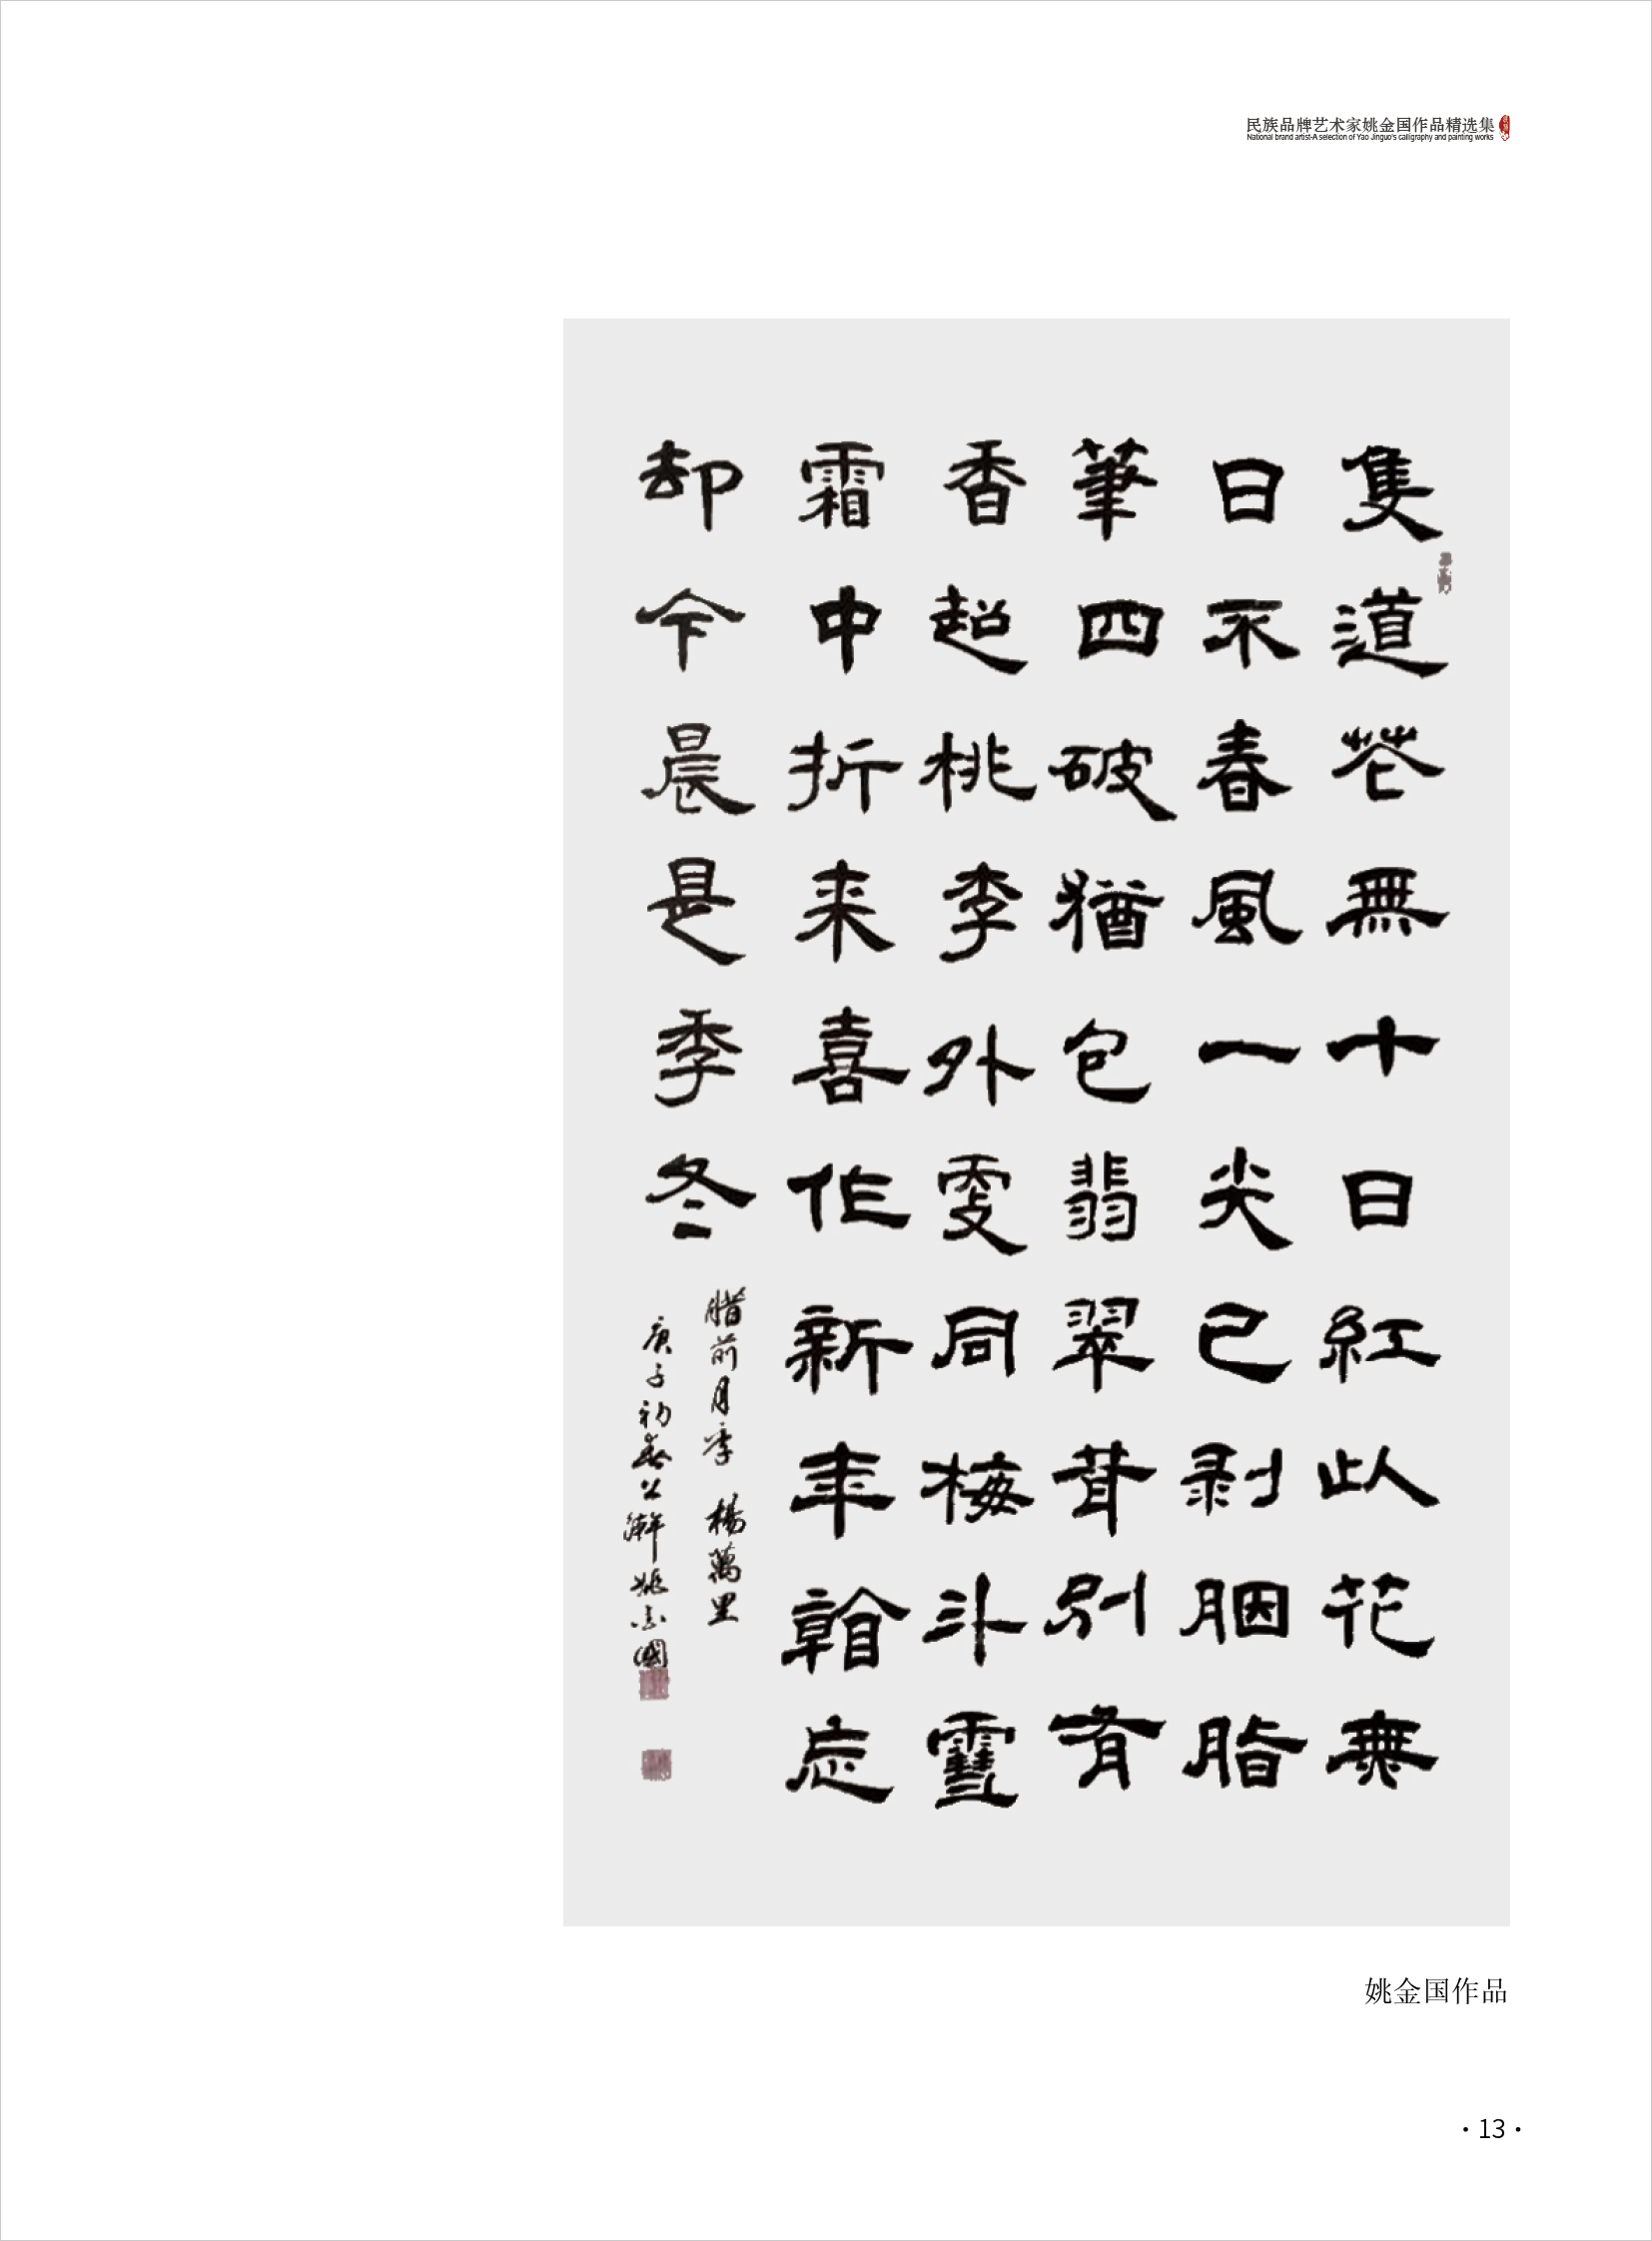 民族品牌艺术家姚金国作品精选集
National brand artist-A selection of Yao Jinguo's calligraphy and painting works
隻道花無十日紅此花無
日不春風一尖已剥胭脂
筆四破猶包翡翠茸别有
香超桃李外更同梅斗雪
霜中折来喜作新年翰忘
却今晨是季冬
腊前月季 楊萬里
庚子初春 姚金國
姚金国作品
·13·